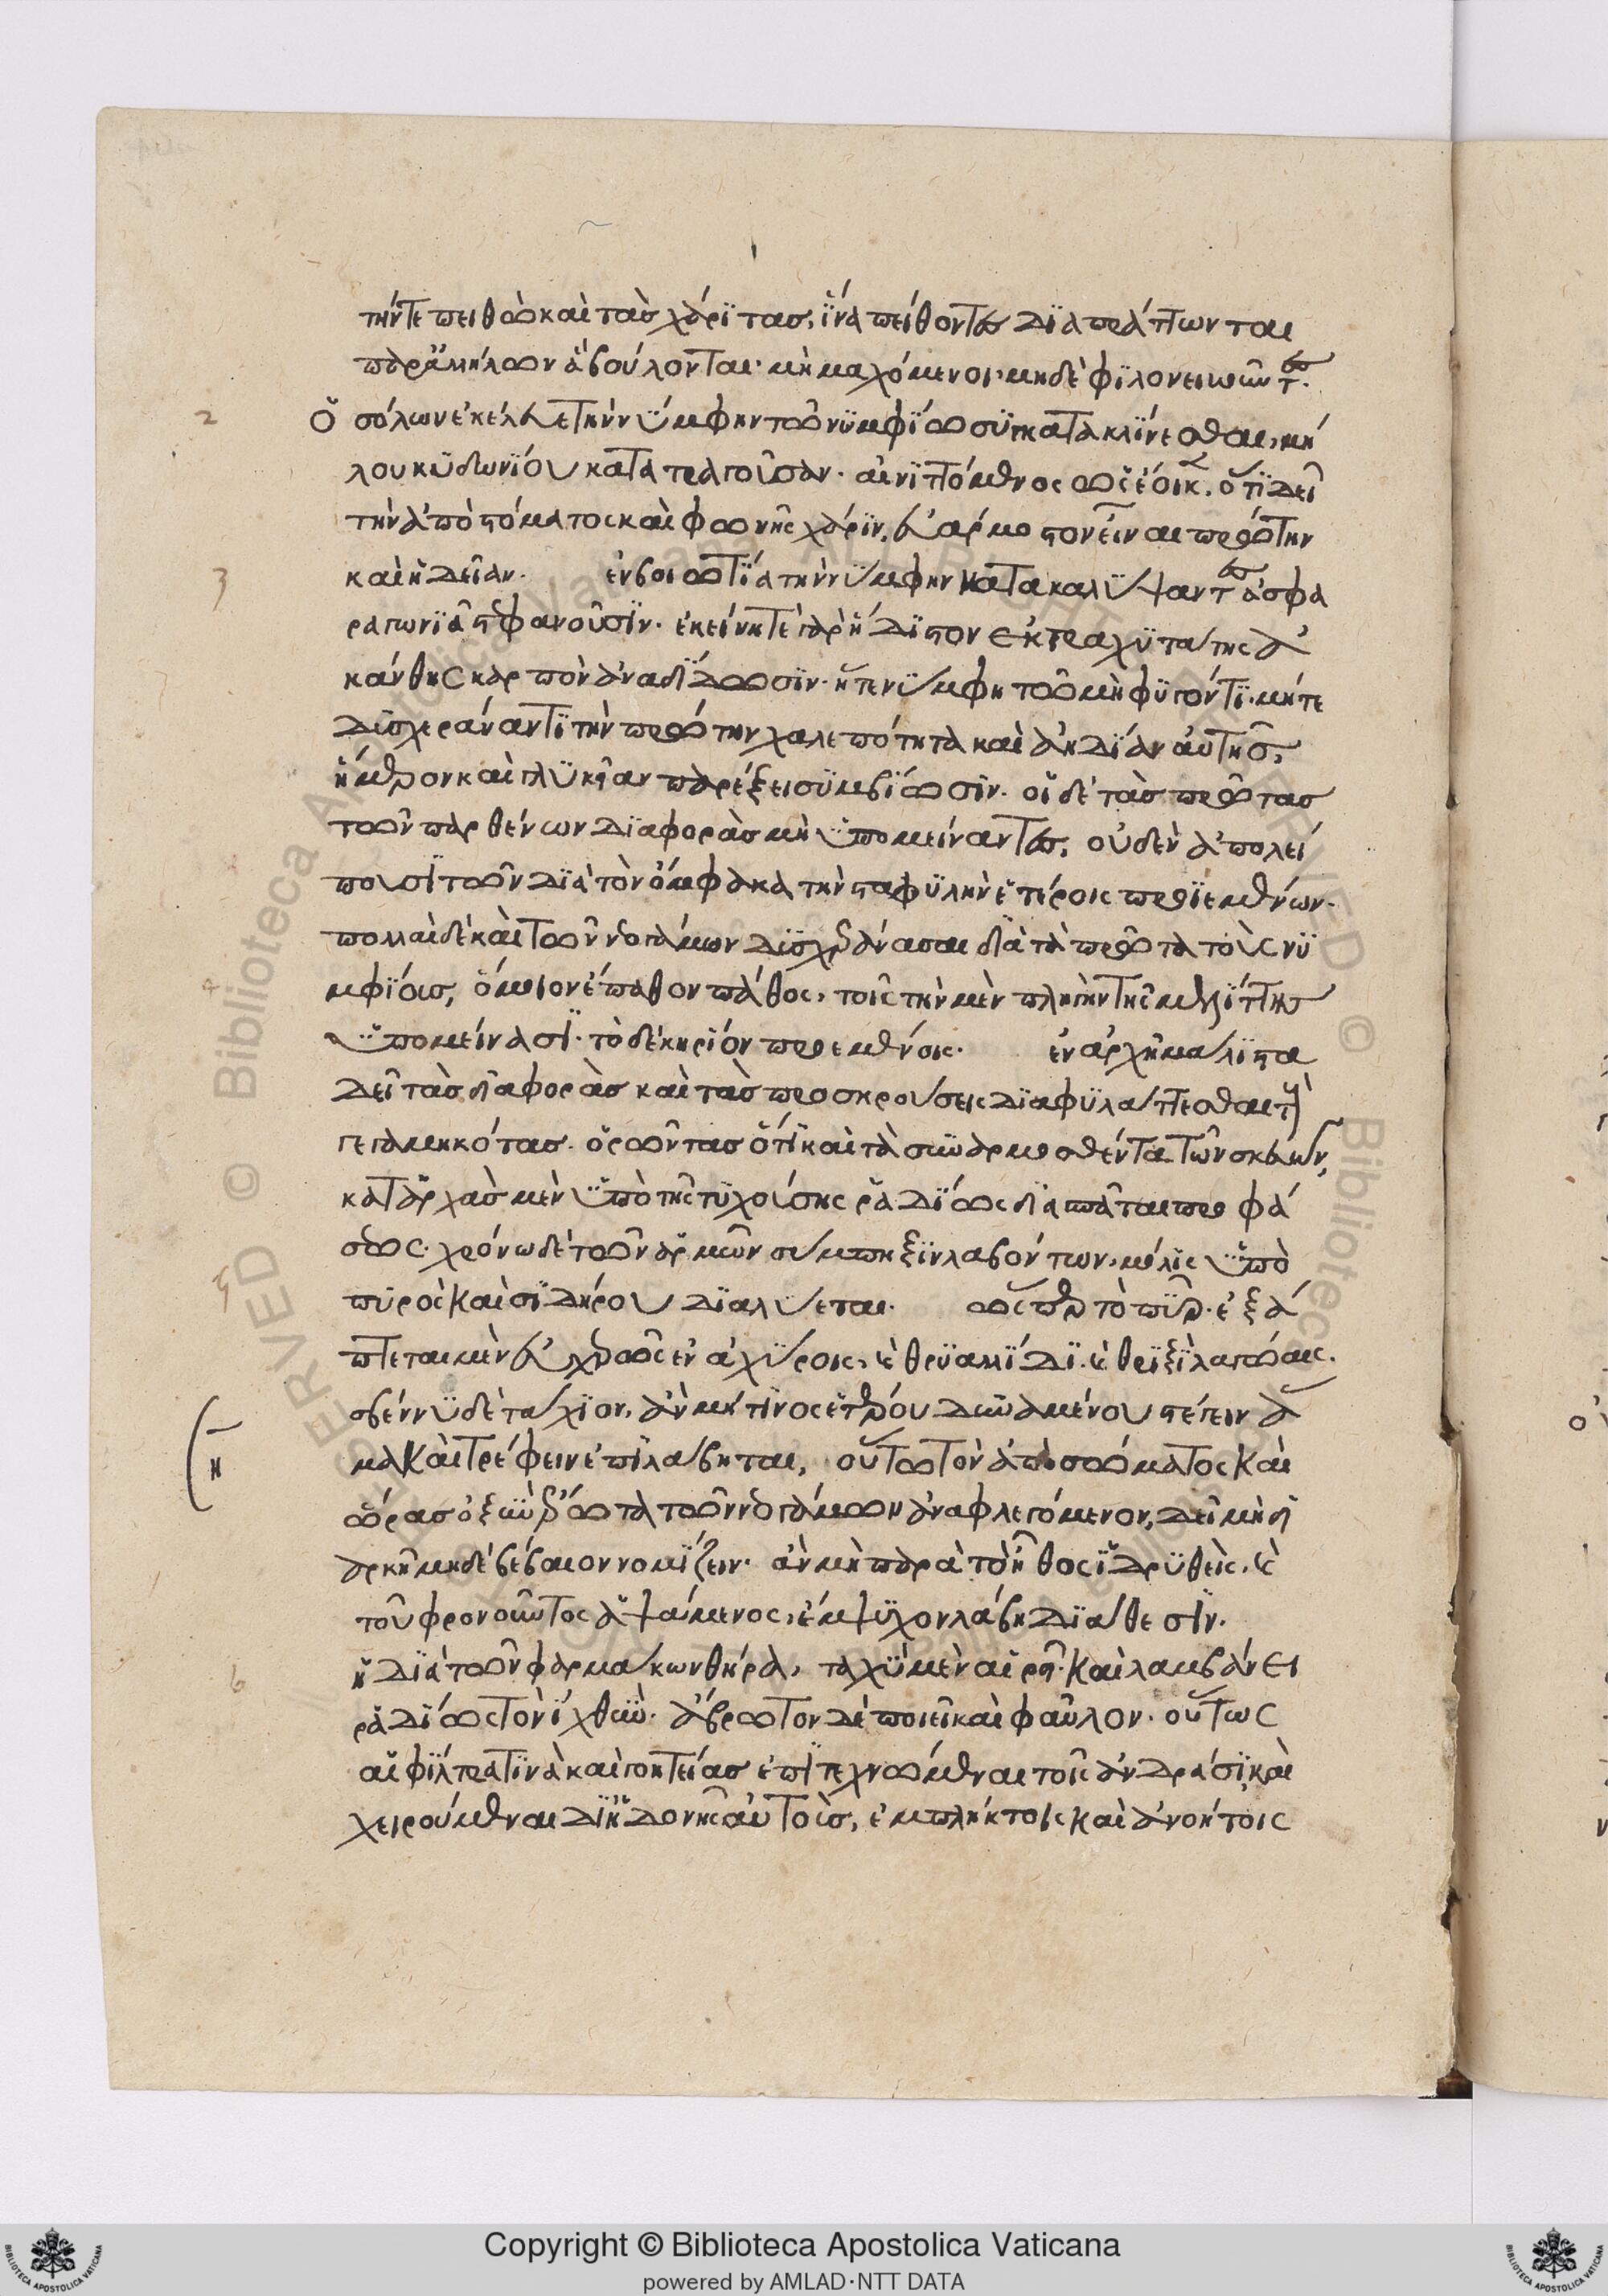 τήν τε πειθὼ καὶ τὰς χάριτας, ἵνα πείθοντες διαπράττωνται
παρ' ἀλλήλων ἃ βούλονται· μὴ μαχόμενοι· μηδὲ φιλονεικοῦντες.
2 Ὁ σόλων ἐκέλευε τὴν νύμφην τῶ νυμφίω συγκατακλίνεσθαι, μή
λου κυδωνίου κατατραγοῦσαν· αἰνιττόμενος ὡς ἔοικεν, ὅτι δεῖ
τὴν ἀπὸ στόματος καὶ φωνῆς χάριν, εὐάρμοστον εἶναι πρῶτην
3 καὶ ἡδεῖαν. ἐν βοιωτία τὴν νύμφην κατακαλύψαντες ἀσφα
ραγωνιᾶ στεφανοῦσιν· ἐκείνη τε γὰρ ἥδιστον ἐκ τραχυτάτης ἀ
κάνθης καρπὸν ἀναδίδωσιν· ἥ τε νύμφη τῶ μὴ φυγόντι· μήτε
δυσχεράναντι τὴν πρώτην χαλεπότητα καὶ ἀηδίαν αὐτῆς,
ἥμερον καὶ γλυκεῖαν παρέξει συμβίωσιν. οἱ δὲ τὰς πρώτας
τῶν παρθένων διαφορὰς μὴ ὑπομείναντες, οὐδὲν ἀπολεί
πουσι τῶν διὰ τὸν ὄμφακα τὴν σταφυλὴν ἑτέροις προϊεμένων.
πολλαὶ δὲ καὶ τῶν νεογάμων δυσχεράνασαι διὰ τὰ πρῶτα τοὺς νυ
4 μφίους, ὅμοιον ἔπαθον πάθος, τοῖς τὴν μὲν πληγὴν τῆς μελίττης
ὑπομείνασι· τὸ δὲ κηρίον προεμένοις. ἐν ἀρχῆ μάλιστα
δεῖ τὰς διαφορὰς καὶ τὰς προσκρούσεις διαφυλάττεσθαι τοὺς
γεγαμηκότας. ὁρῶντας ὅτι καὶ τὰ συναρμοσθέντα τῶν σκευῶν,
κατ' ἀρχὰς μὲν ὑπὸ τῆς τυχούσης ῥαδίως διασπᾶται προφά
σεως· χρόνω δὲ τῶν ἁρμῶν σύμπηξιν λαβόντων, μόλις ὑπὸ
5 πυρὸς καὶ σιδήρου διαλύεται. ὥσπερ τὸ πῦρ· ἐξά
πτεται μὲν εὐχερῶς ἐν ἀχύροις, καὶ θρυαλλίδι· καὶ θριξὶ λαγώαις.
σβέννυδὲ τάχιον, ἂν μή τινος ἑτέρου δυναμένου στέγειν ἅ
ῑ η μα καὶ τρέφειν ἐπιλάβηται, οὕτω τὸν ἀπὸ σώματος καὶ
ὥρας ὀξὺν ἔρωτα τῶν νεογάμων ἀναφλεγόμενον, δεῖ μὴ δι
αρκῆ μηδὲ βέβαιον νομίζειν· ἂν μὴ παρὰ τὸ ἦθος ἱδρυθεὶς, καὶ
τοῦ φρονοῦντος ἁψάμενος, ἔμψυχον λάβη διάθεσιν.
6 ἡ διὰ τῶν φαρμάκων θήρα, ταχὺ μὲν αἱρεῖ καὶ λαμβάνει
ῥαδίως τὸν ἰχθὺν· ἄβρωτον δὲ ποιεῖ καὶ φαῦλον· οὕτως
αἱ φίλτρα τινὰ καὶ γοητείας ἐπιτεχνώμεναι τοῖς ἀνδράσι καὶ
χειρούμεναι δι' ἡδονῆς αὐτοὺς, ἐμπλήκτοις καὶ ἀνοήτοις
Copyright © Biblioteca Apostolica Vaticana
powered by AMLAD·NTT DATA